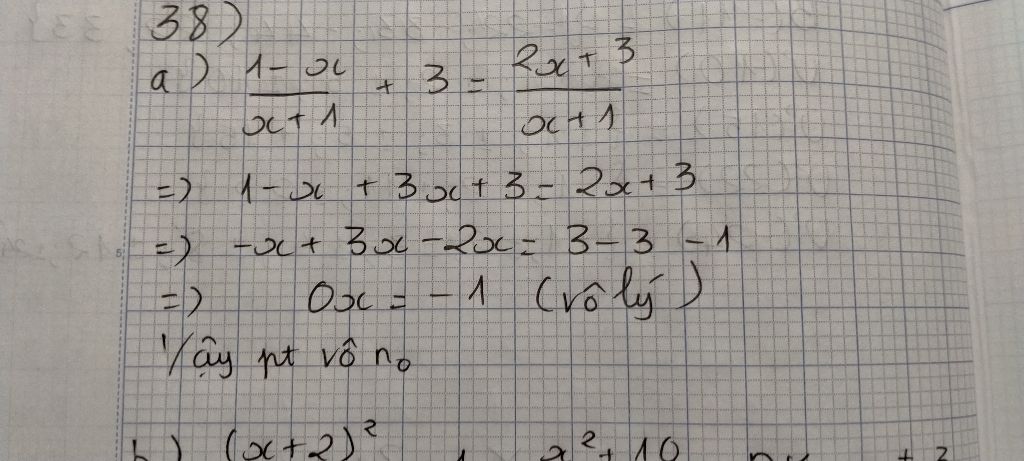 38)
a) \frac{1-x}{x+1} + 3 = \frac{2x+3}{x+1}
=) 1-x + 3x+3 = 2x+3
=) -x + 3x - 2x = 3-3-1
=) 0x = -1 (vô lý)
Vậy pt vô no
b) (x+2)² x²+10